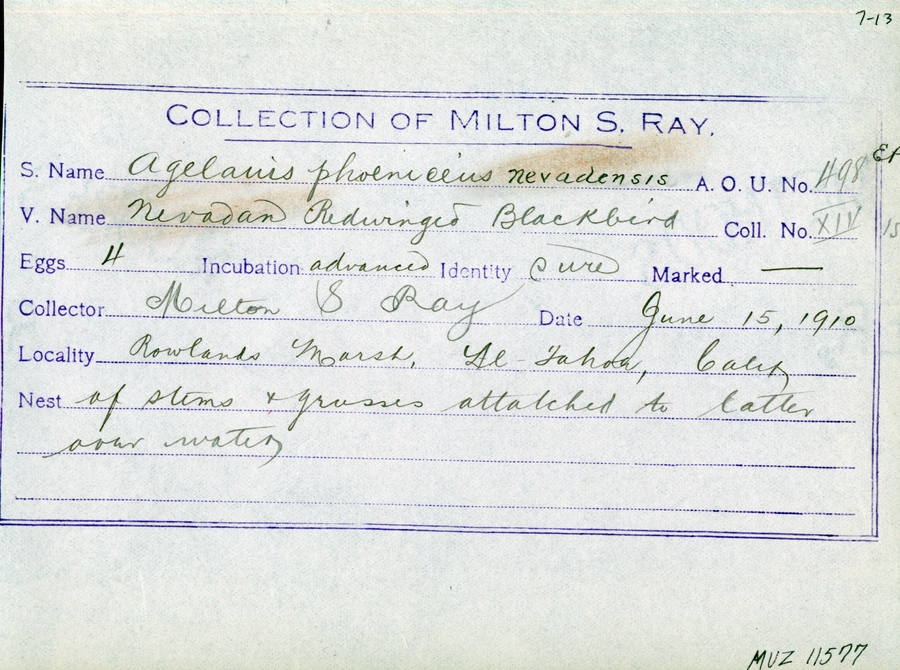 7-13
COLLECTION OF MILTON S. RAY.
S. Name Agelaius phoeniceus nevadensis A. O. U. No. 498
V. Name Nevadan Redwinged Blackbird Coll. No. XIV
Eggs 4 Incubation advanced Identity sure Marked —
Collector Milton S Ray Date June 15, 1910
Locality Rowlands Marsh, Al-Tahoe, Calif
Nest of stems & grasses attatched to latter
over water
MVZ 11577